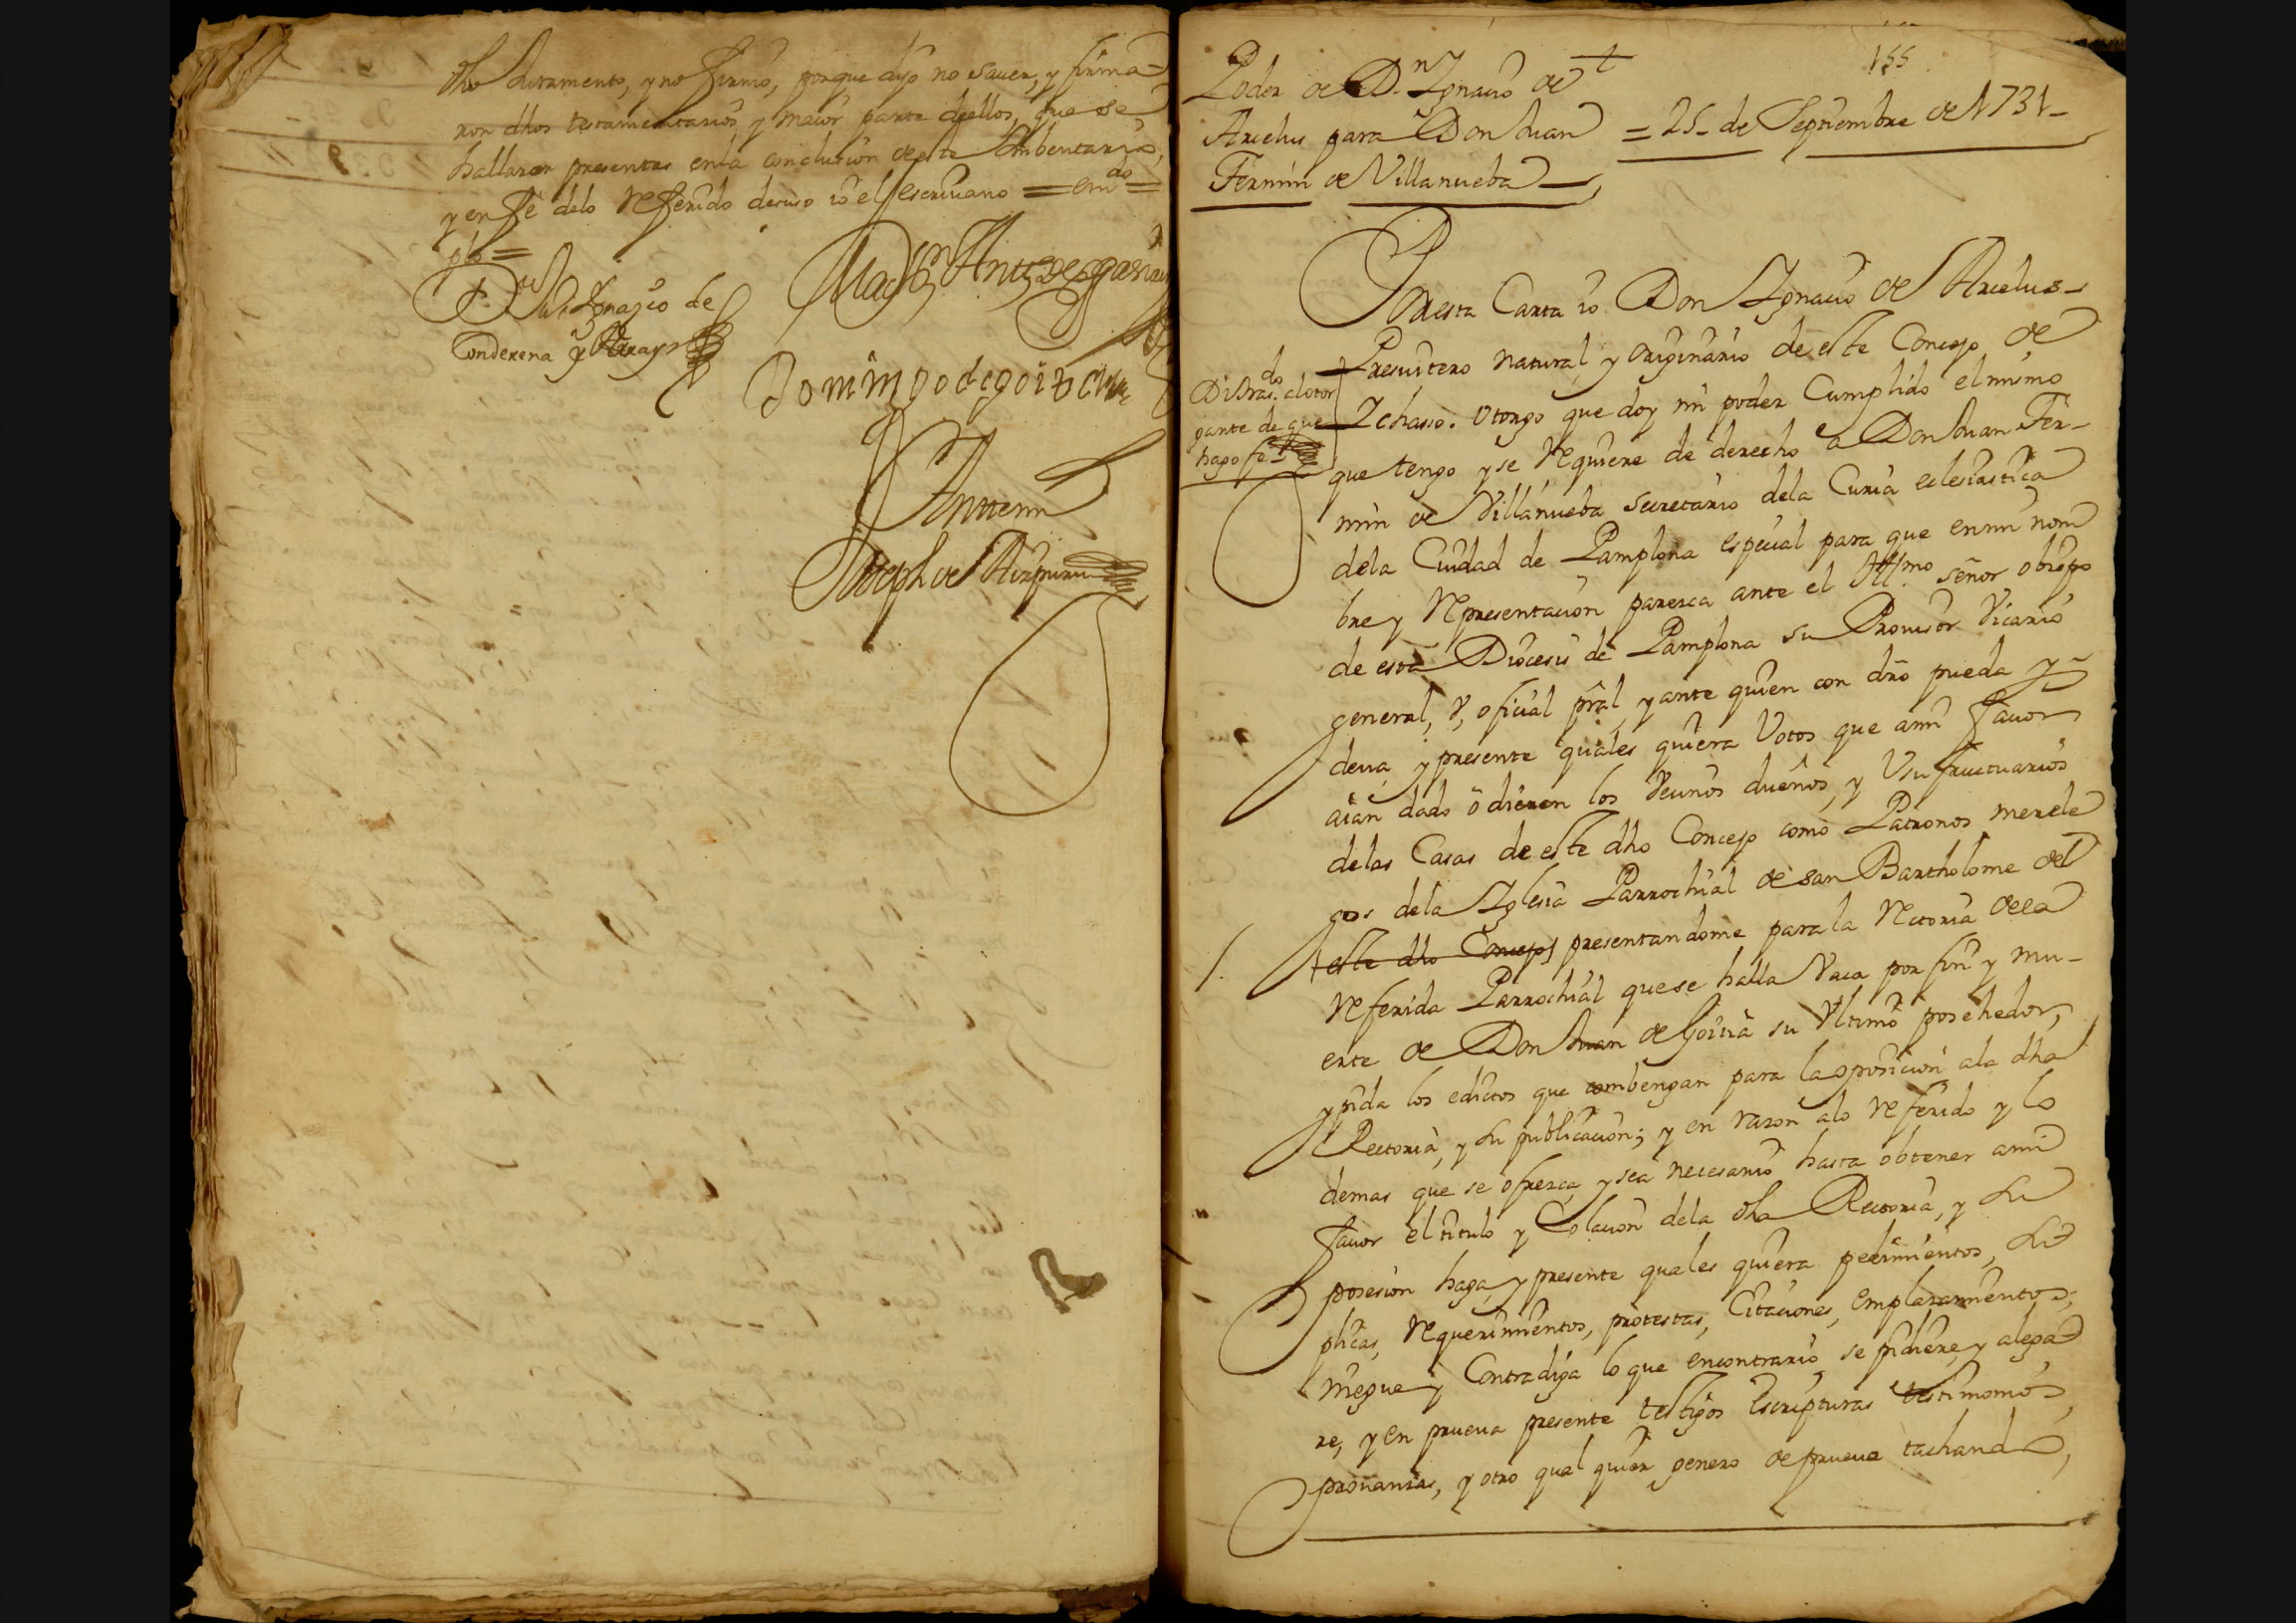 dho Juramento, y no firmó, porque dijo no saver, y firma-
ron dhos testamentarios, y maior parte de ellos, que se
hallaron presentes en la conclusion de este Ymbentario,
y en fe de lo Referido de suso io el escrivano = emdo =
plo =
Dn Ju. Ygnazio de
Conderena y Array
Martin Antt de garai
Domingo de goitia
Antemi
Joseph de Aizpuru
155
Poder de Dn. Ygnacio de
Arcelus para Don Juan = 25 de Septiembre de 1731 -
Fermin de Villanueba
Por esta Carta io Don Ygnacio de Arcelus
Presvitero natural, y originario de este Concejo de
Di tras.do al otor
gante de que
hago fe
Ychasso. Otorgo que doy mi poder Cumplido el mismo
que tengo y se Requiere de derecho a Don Juan Fer-
min de Villanueba Secretario dela Curia eclesiastica
dela Ciudad de Pamplona especial para que en mi nom
bre y Representacion paresca ante el Illmo señor obispo
de esta Diocesis de Pamplona su Provisor Vicario
general, Y, oficial pral, y ante quien con dro pueda y
deva, y presente quales quiera Votos que a mi favor
aian dado ò dieren los Vecinos dueños, y Usufructuarios
delas Casas de este dho Concejo como Patronos merele
gos dela Yglesia Parrochial de san Bartholome del
este dho Concejo presentandome para la Retoria dela
Referida Parrochial que se halla Vaca por fin y mu-
erte de Don Juan de Goitia su Vltimo posehedor,
y pida los edictos que combengan para la oposicion ala dha
Rectoria, y su publicacion; y en razon alo Referido y lo
demas que se ofresca, y sea necesario hasta obtener a mi
favor el titulo y Colacion dela dha Rectoria, y su
posesion haga, y presente quales quiera pedimientos, su
plicas, Requerimientos, protestas, Citaciones, emplazamientos,
niegue y Contradiga lo que en contrario se pidiere, y alega
re, y en prueva presente testigos Escripturas testimonios
provanzas, y otro qual quier genero de prueva tachando,